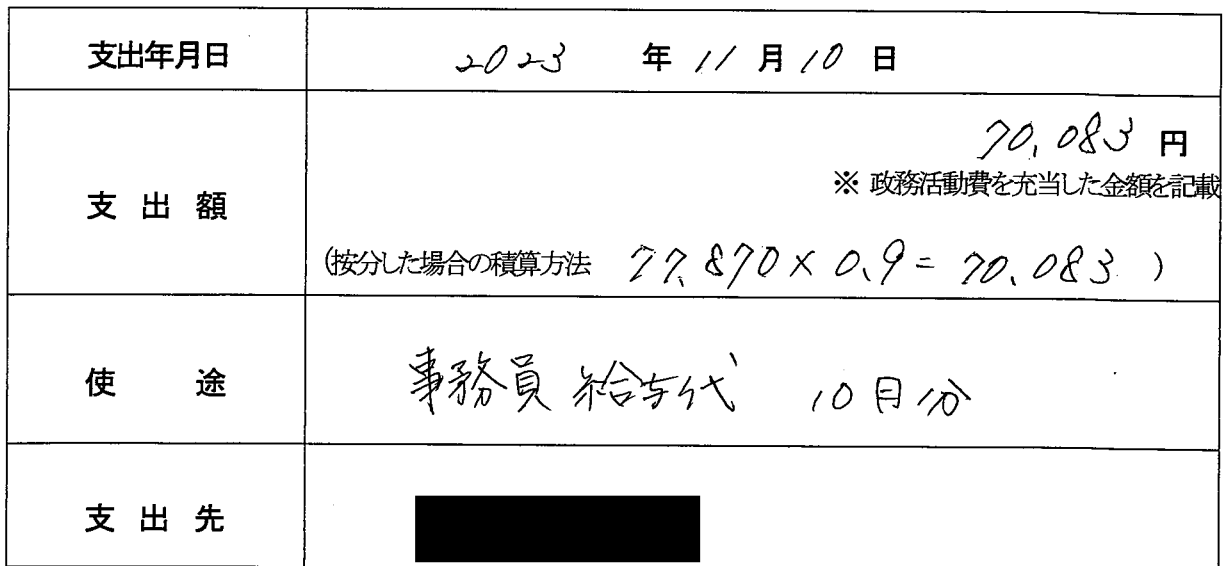 支出年月日 2023 年 11 月 10 日
70,083 円
※ 政務活動費を充当した金額を記載
支出額
(按分した場合の積算方法 77,870 × 0.9 = 70,083 )
使途 事務員 給与代 10月分
支出先